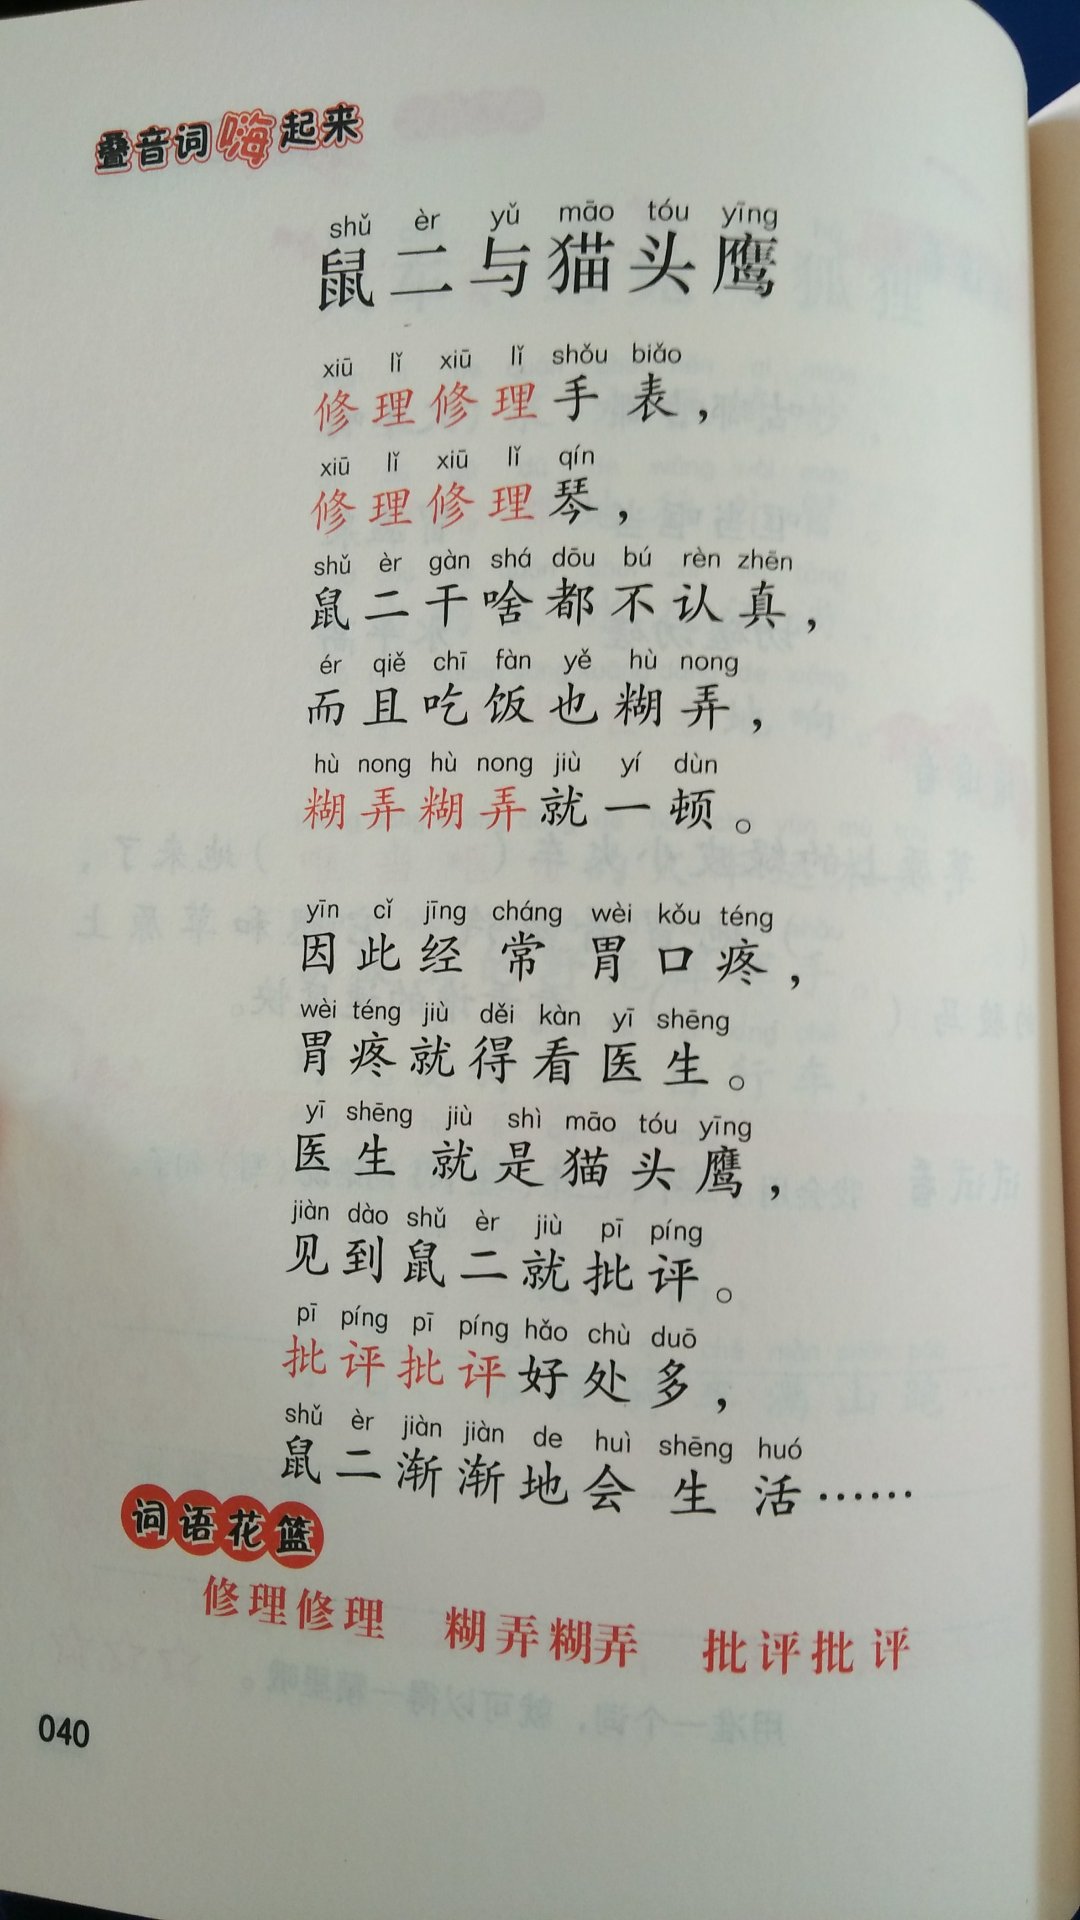 叠音词嗨起来
shǔ èr yǔ māo tóu yīng
鼠二与猫头鹰
xiū lǐ xiū lǐ shǒu biǎo
修理修理手表，
xiū lǐ xiū lǐ qín
修理修理琴，
shǔ èr gàn shá dōu bú rèn zhēn
鼠二干啥都不认真，
ér qiě chī fàn yě hù nong
而且吃饭也糊弄，
hù nong hù nong jiù yí dùn
糊弄糊弄就一顿。
yīn cǐ jīng cháng wèi kǒu téng
因此经常胃口疼，
wèi téng jiù děi kàn yī shēng
胃疼就得看医生。
yī shēng jiù shì māo tóu yīng
医生就是猫头鹰，
jiàn dào shǔ èr jiù pī píng
见到鼠二就批评。
pī píng pī píng hǎo chù duō
批评批评好处多，
shǔ èr jiàn jiàn de huì shēng huó
鼠二渐渐地会生活……
词语花篮
修理修理 糊弄糊弄 批评批评
040